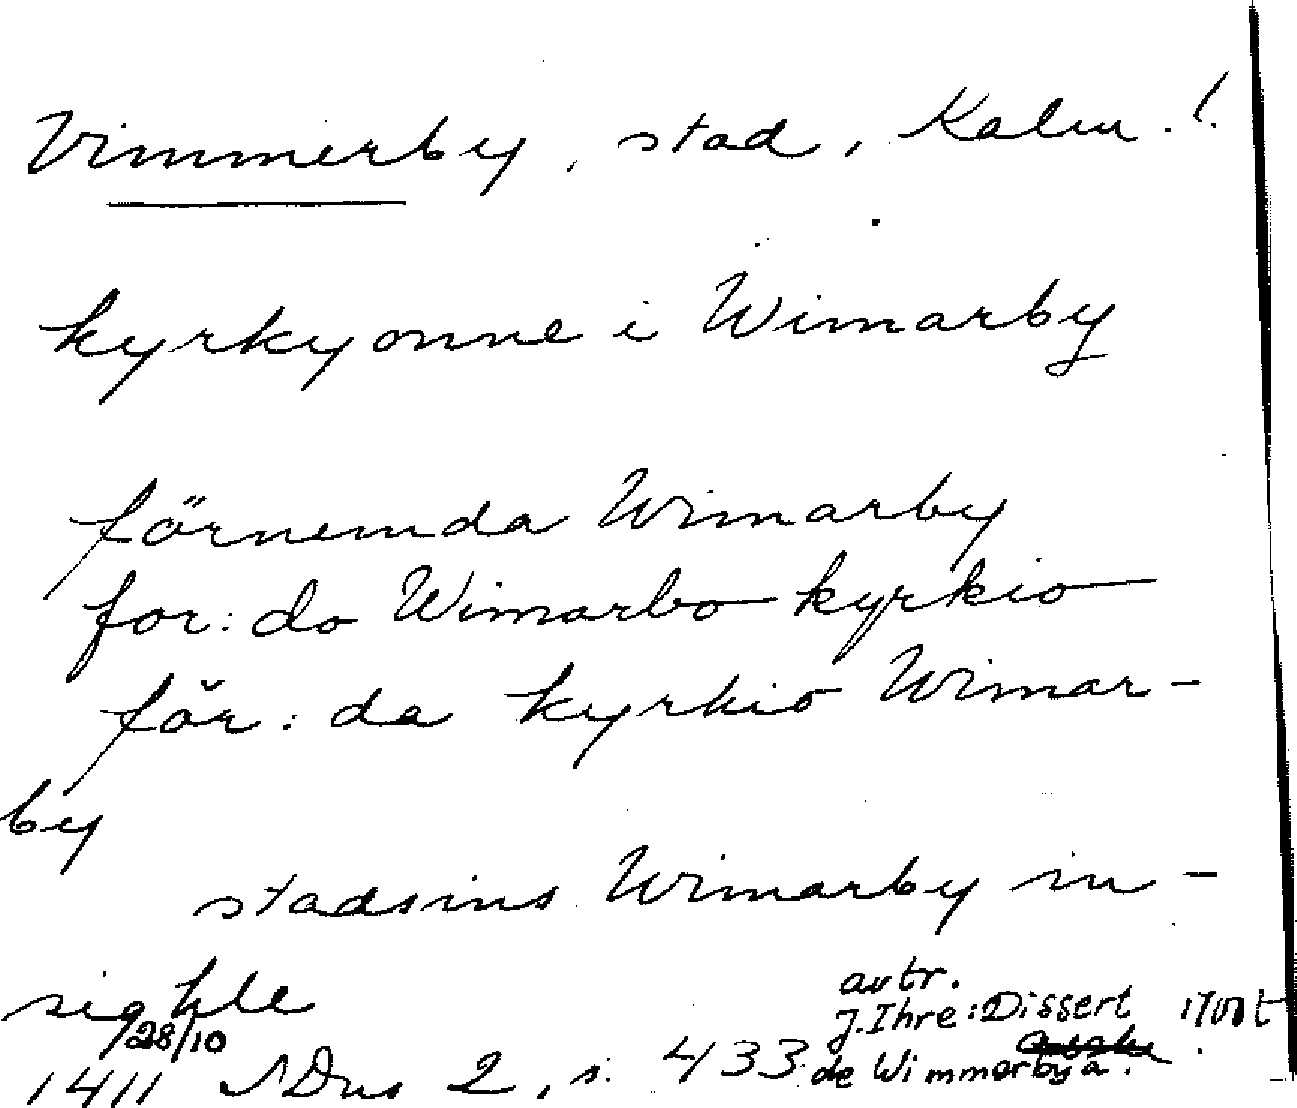 Vimmerby, stad, Kalm. l.
kyrkyonne i Wimarby
förnemda Wimarby
for: do Wimarbo kyrkio
för: da kyrkio Wimar-
by
stadsins Wimarby in-
sighle
28/10
1411 SDns 2, s. 433
avtr.
J. Ihre: Dissert
de Wimmerbya.